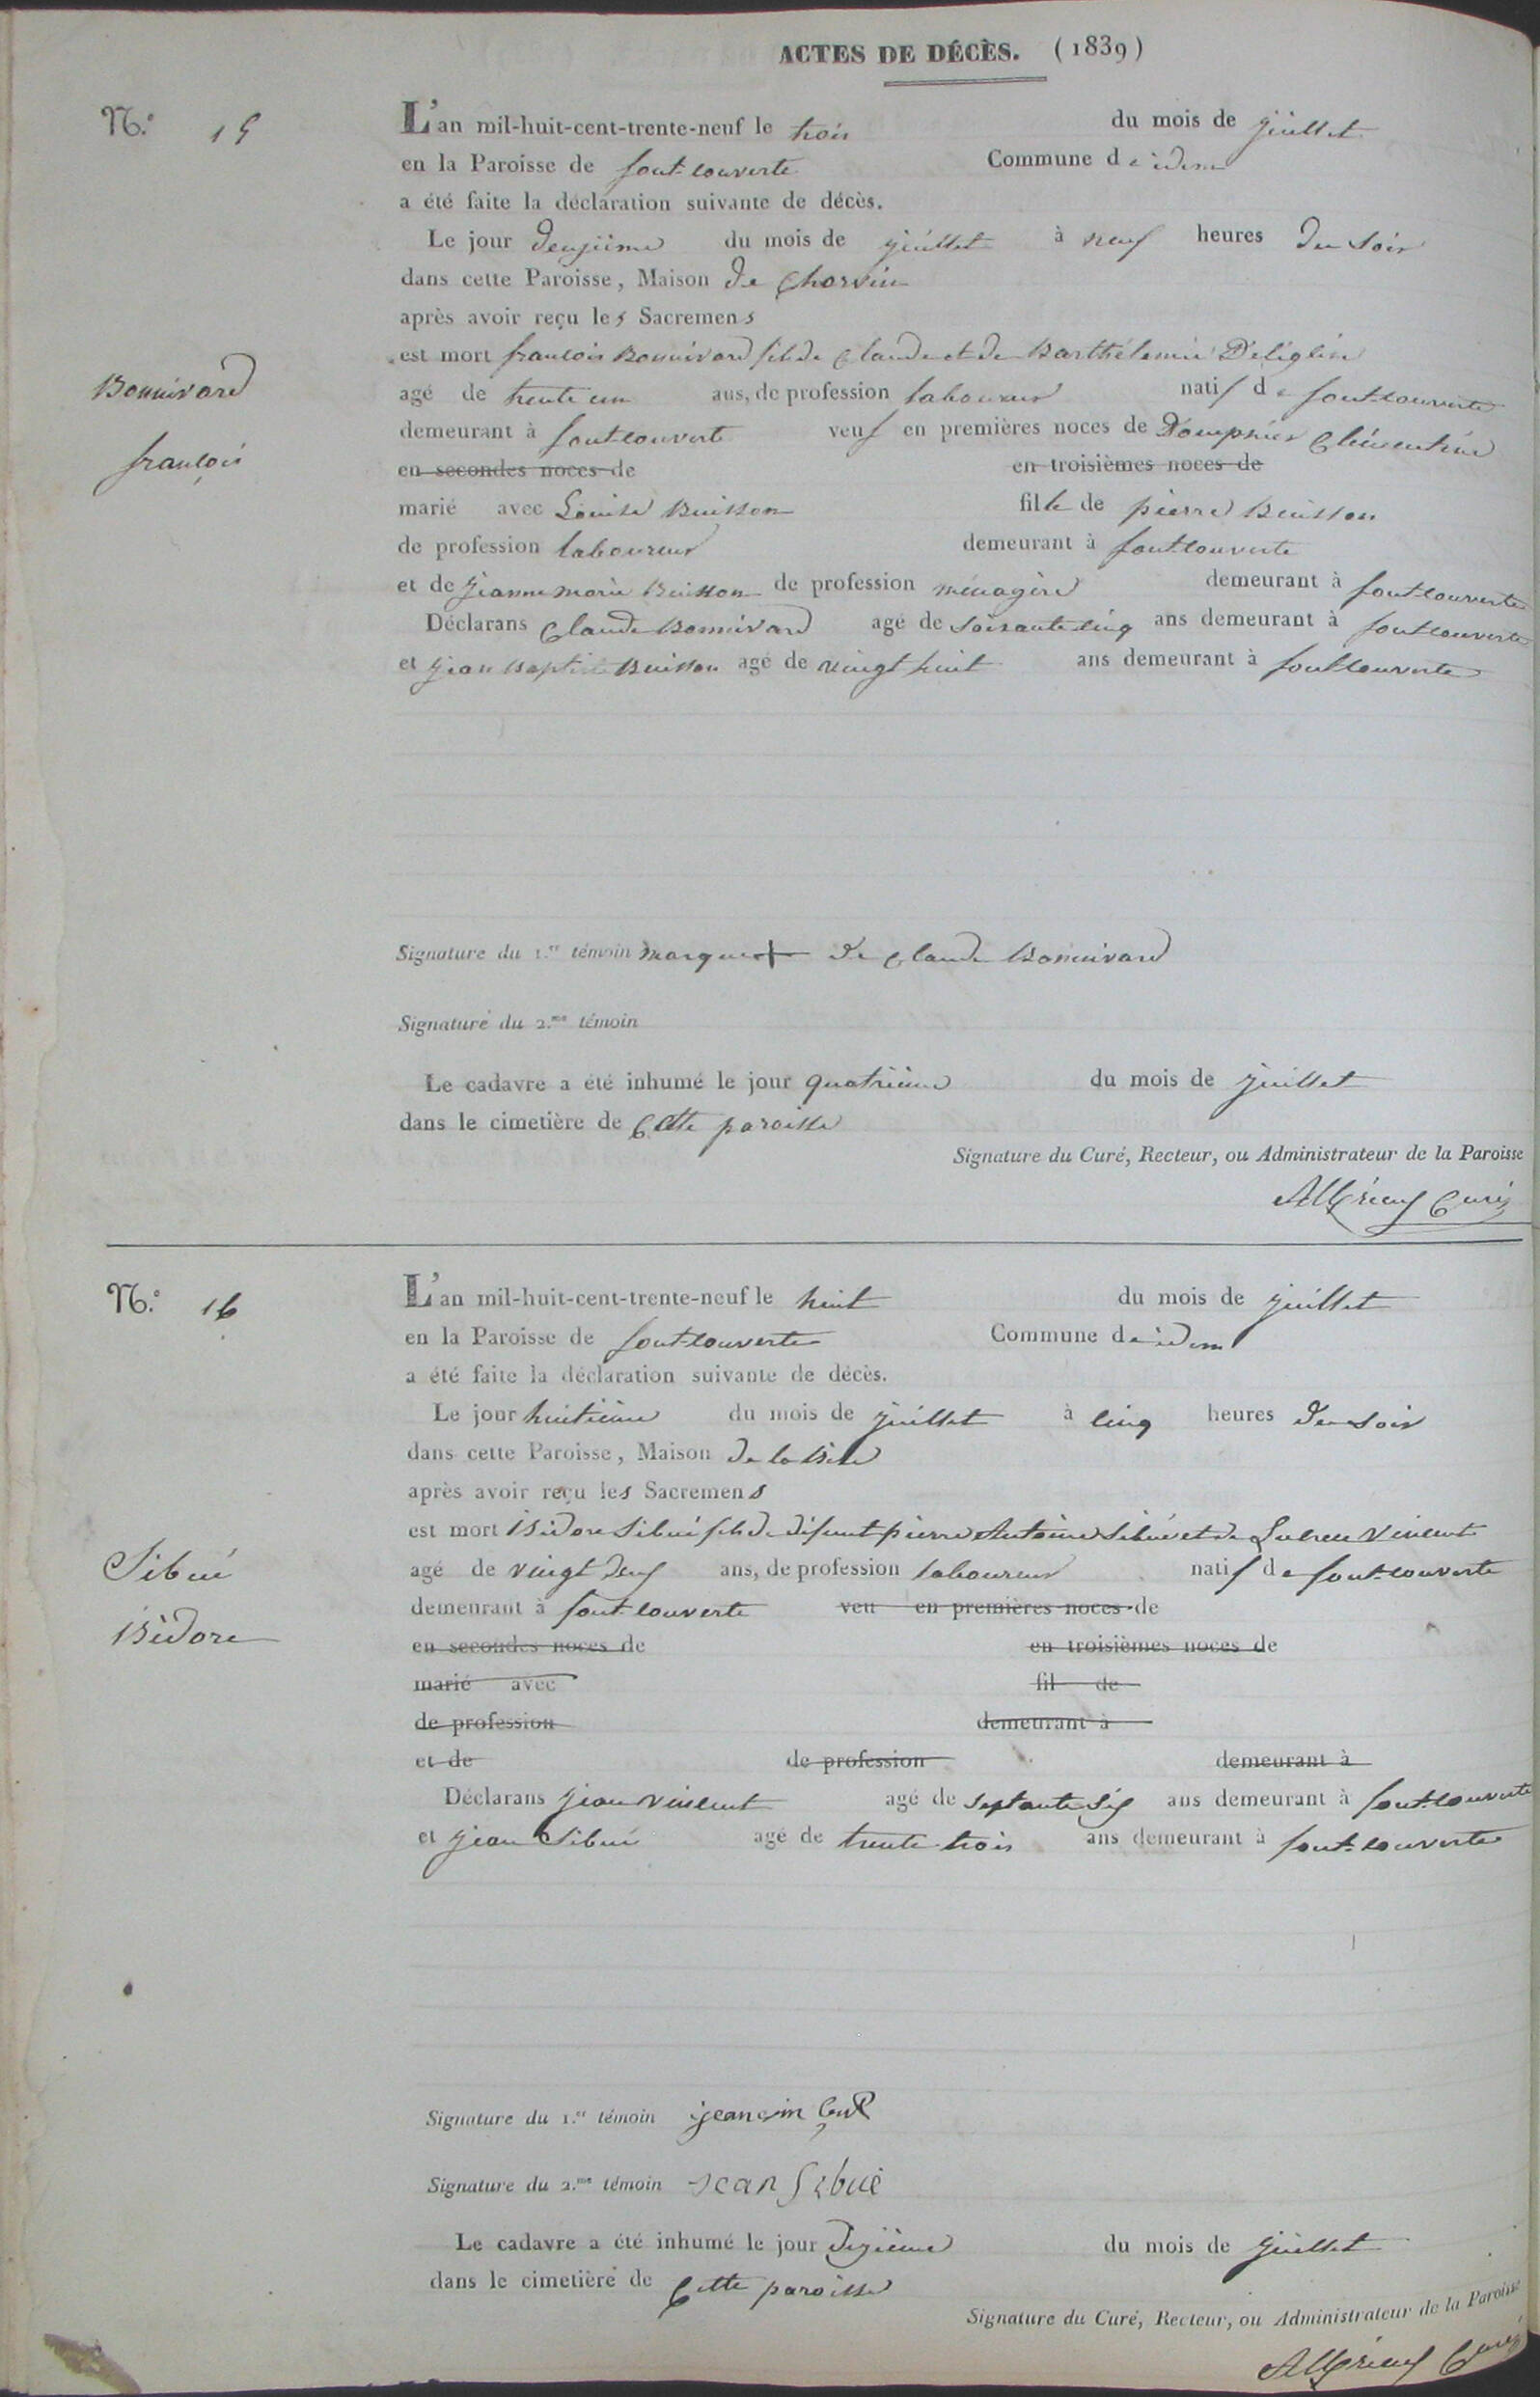 ACTES DE DÉCÈS. (1839)
N.° 15
L'an mil-huit-cent-trente-neuf le trois du mois de juillet
en la Paroisse de font-couverte Commune de idem
a été faite la déclaration suivante de décès.
Le jour deuxième du mois de juillet à neuf heures du soir
dans cette Paroisse, Maison de Charvin
après avoir reçu les Sacremens
est mort françois Bonnivard fils de Claude et de Barthélemie Deléglise
Bonnivard
françois
agé de trente un ans, de profession laboureur natif de font-couverte
demeurant à fontcouverte veuf en premières noces de Dompnier Clémentine
en secondes noces de en troisièmes noces de
marié avec Louise Buisson fille de pierre Buisson
de profession laboureur demeurant à fontcouverte
et de Jeanne marie Buisson de profession ménagère demeurant à font-couverte
Déclarans Claude Bonnivard agé de soixante cinq ans demeurant à fontcouverte
et jean Baptiste Buisson agé de vingt huit ans demeurant à fontcouverte
Signature du 1.er témoin marque + de Claude Bonnivard
Signature du 2.me témoin
Le cadavre a été inhumé le jour quatrième du mois de juillet
dans le cimetière de Cette paroisse
Signature du Curé, Recteur, ou Administrateur de la Paroisse
Curé
N.° 16
L'an mil-huit-cent-trente-neuf le huit du mois de juillet
en la Paroisse de font-couverte Commune de idem
a été faite la déclaration suivante de décès.
Le jour huitième du mois de juillet à cinq heures du soir
dans cette Paroisse, Maison de la
après avoir reçu les Sacremens
est mort Isidore Sibué fils de défunt pierre Antoine Sibué et de Vincent
Sibué
Isidore
agé de vingt deux ans, de profession laboureur natif de font-couverte
demeurant à font-couverte veu en premières noces de
en secondes noces de en troisièmes noces de
marié avec fil de
de profession demeurant à
et de de profession demeurant à
Déclarans jean vincent agé de septante six ans demeurant à font-couverte
et jean Sibué agé de trente trois ans demeurant à font-couverte
Signature du 1.er témoin jean
Signature du 2.me témoin jean Sibué
Le cadavre a été inhumé le jour dixième du mois de juillet
dans le cimetière de Cette paroisse
Signature du Curé, Recteur, ou Administrateur de la Paroisse
Curé